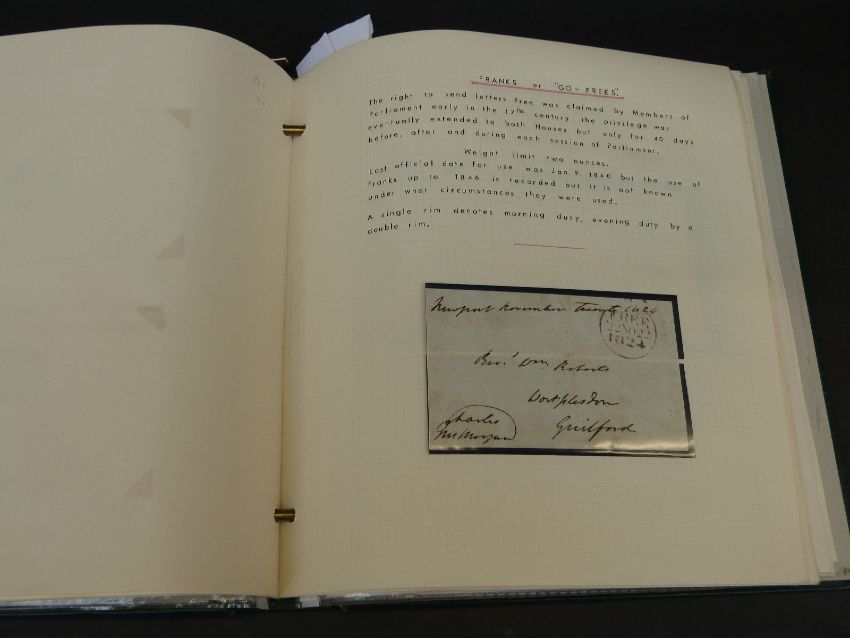 FRANKS or "GO-FREES".
The right to send letters free was claimed by Members of
Parliament early in the 17th. century. the privilege was
eventually extended to both Houses but only for 40 days
before, after and during each session of Parliament.
Weight limit two ounces.
Last official date for use was Jan. 9. 1840 but the use of
Franks up to 1846 is recorded but it is not known
under what circumstances they were used.
A single rim denotes morning duty, evening duty by a
double rim.
Newport November twenty 1824
FREE
22NO22
1824
Revd Wm Roberts
Worplesdon
Guilford
Charles
Morgan